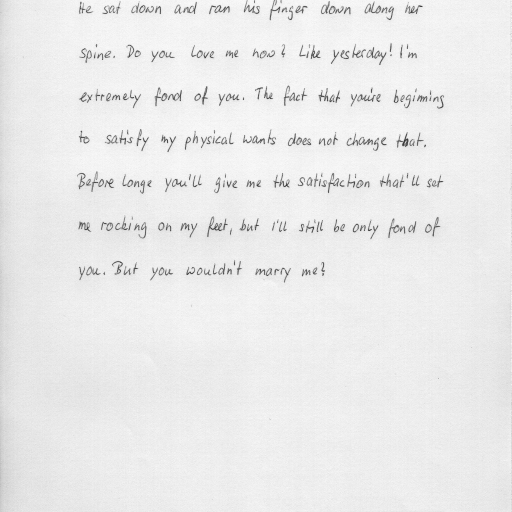 He sat down and ran his finger down along her
spine. Do you love me now? Like yesterday! I'm
extremely fond of you. The fact that you're beginning
to satisfy my physical wants does not change that.
Before longe you'll give me the satisfaction that'll set
me rocking on my feet, but i'll still be only fond of
you. But you wouldn't marry me?